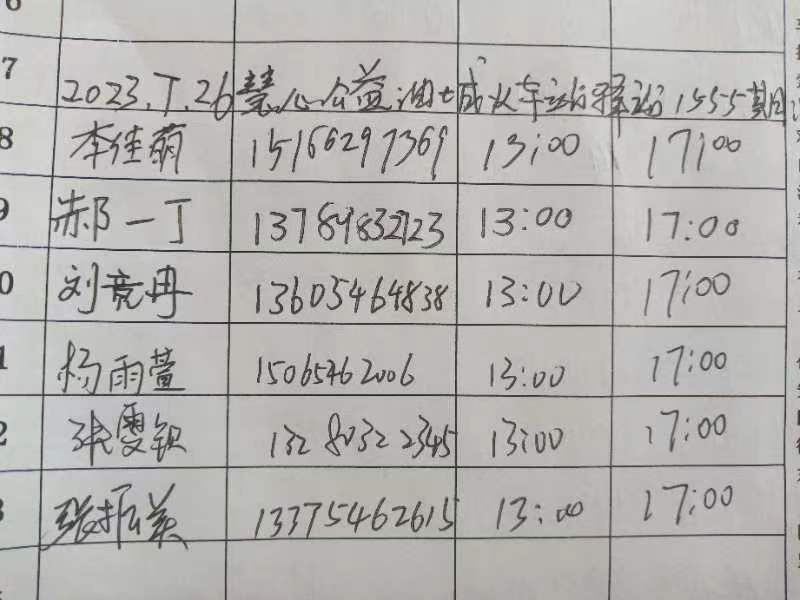 6
7 2023.7.26 慧心公益 油城火车站驿站 1555黄
8 李佳萌 15166297369 13:00 17:00
9 郝一丁 13789832723 13:00 17:00
0 刘竞冉 13605464838 13:00 17:00
1 杨雨萱 15065462006 13:00 17:00
2 张雯钡 13280322345 13:00 17:00
3 张振美 13375462615 13:00 17:00